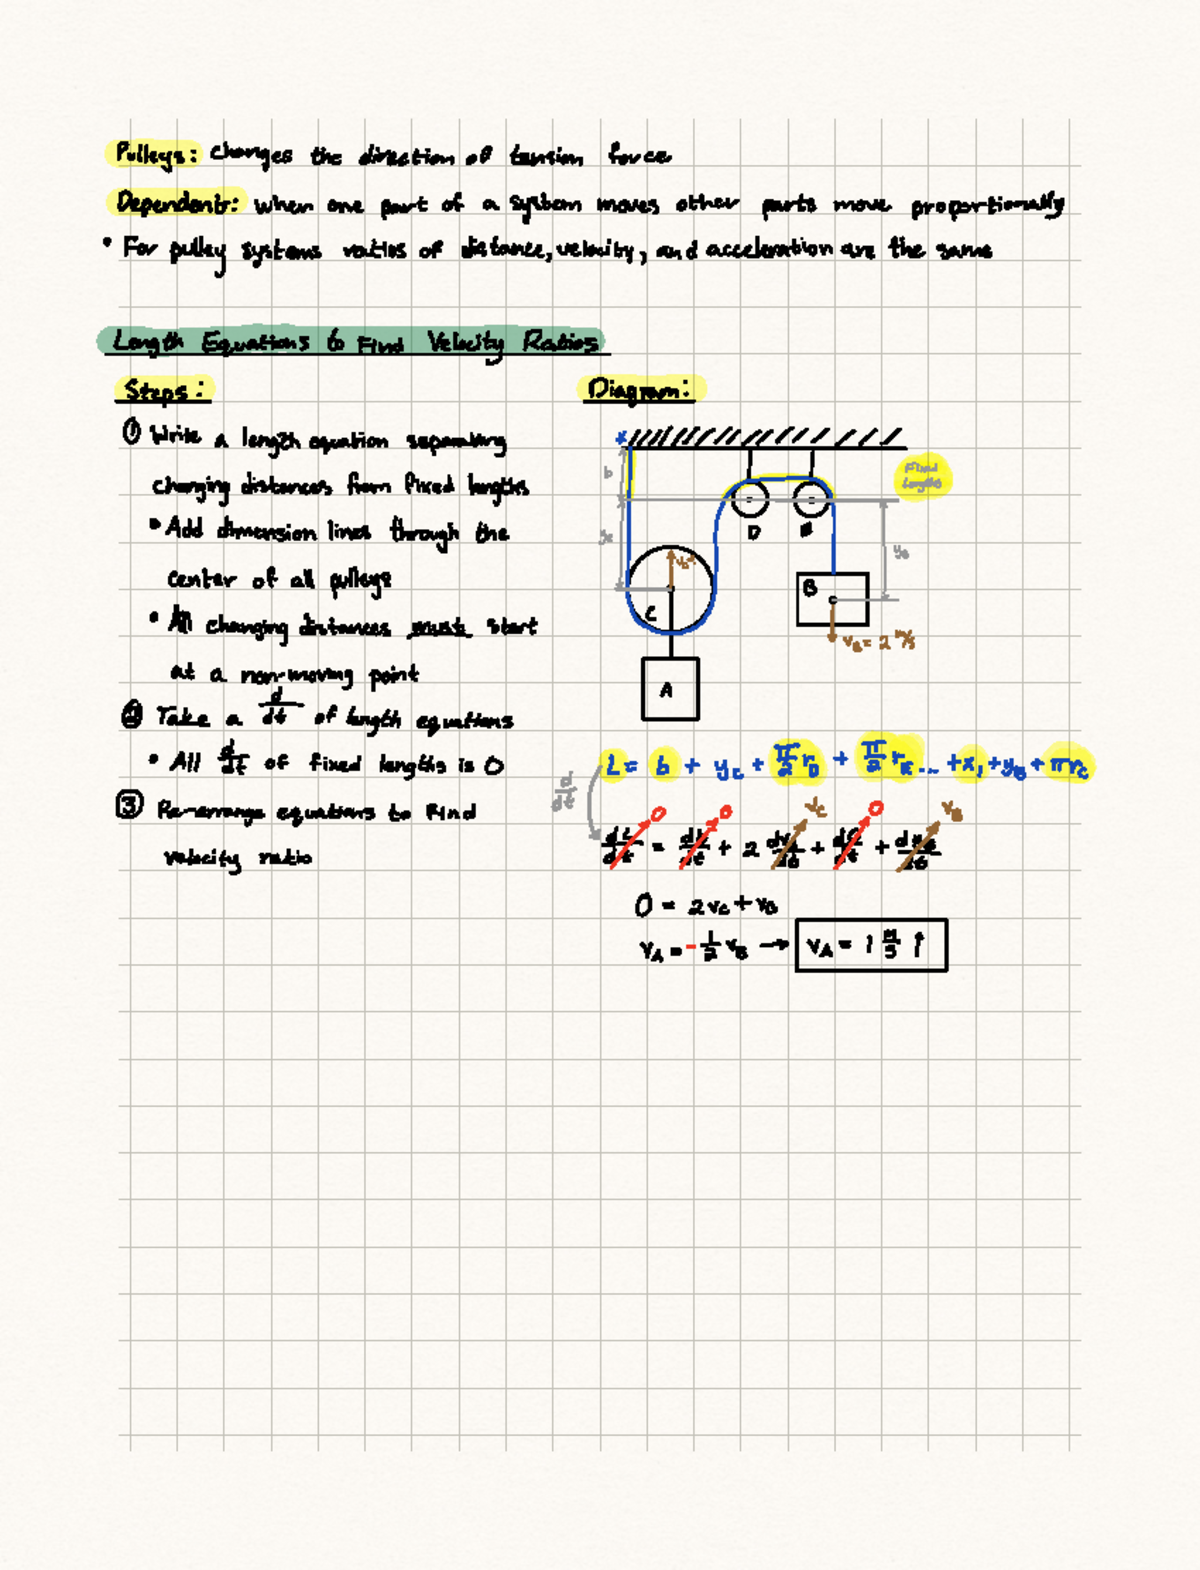 Pulleys: changes the direction of tension force
Dependent: when one part of a system moves other parts move proportionally
• For pulley systems ratios of distance, velocity, and acceleration are the same
Length Equations to Find Velocity Ratios
Steps:
① Write a length equation separating
changing distances from fixed lengths
• Add dimension lines through the
center of all pulleys
• All changing distances must start
at a non-moving point
② Take a d/dt of length equations
• All d/dt of fixed lengths is 0
③ Re-arrange equations to Find
velocity ratio
Diagram:
Fixed
lengths
b
D
E
y_B
C
B
v_B = 2 m/s
A
L = b + y_C + π/2 r_D + π/2 r_E ... + x_1 + y_B + πr_C
d/dt
0 0 v_C 0 v_B
dL/dt = + 2 + +
0 = 2v_C + v_B
v_A = -1/2 v_B → v_A = 1 m/s ↑